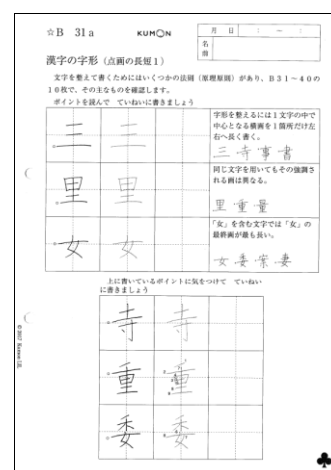 ☆B 31a
KUMON
月 日 : ~ :
名前
漢字の字形（点画の長短1）
文字を整えて書くためにはいくつかの法則（原理原則）があり、B31～40の
10枚で、その主なものを確認します。
ポイントを読んで ていねいに書きましょう
三 三
字形を整えるには1文字の中で
中心となる横画を1箇所だけ左
右へ長く書く。
三 寺 事 書
里 里
同じ文字を用いてもその強調さ
れる画は異なる。
里 重 量
女 女
「女」を含む文字では「女」の
最終画が最も長い。
女 委 案 妻
上に書いているポイントに気をつけて ていねい
に書きましょう
寺 寺
重 重
委 委